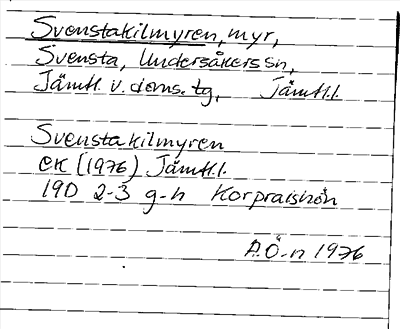 Svenstakilmyren, myr,
Svensta, Undersåkers sn,
Jämtl. v. doms. tg, Jämtl.l.
Svenstakilmyren
ek (1976) Jämtl.l.
19D 2-3 g-h Korpraishön
A.Ö-n 1976